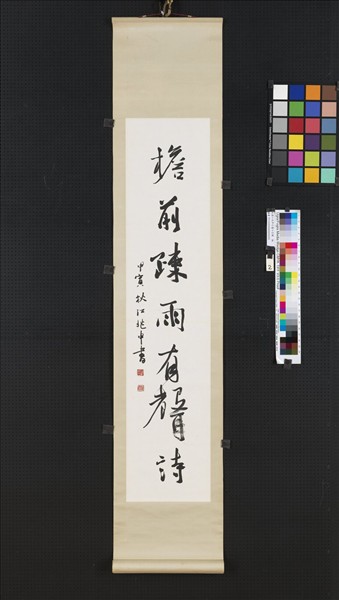 檐前疎雨有聲詩
甲寅秋江兆申書